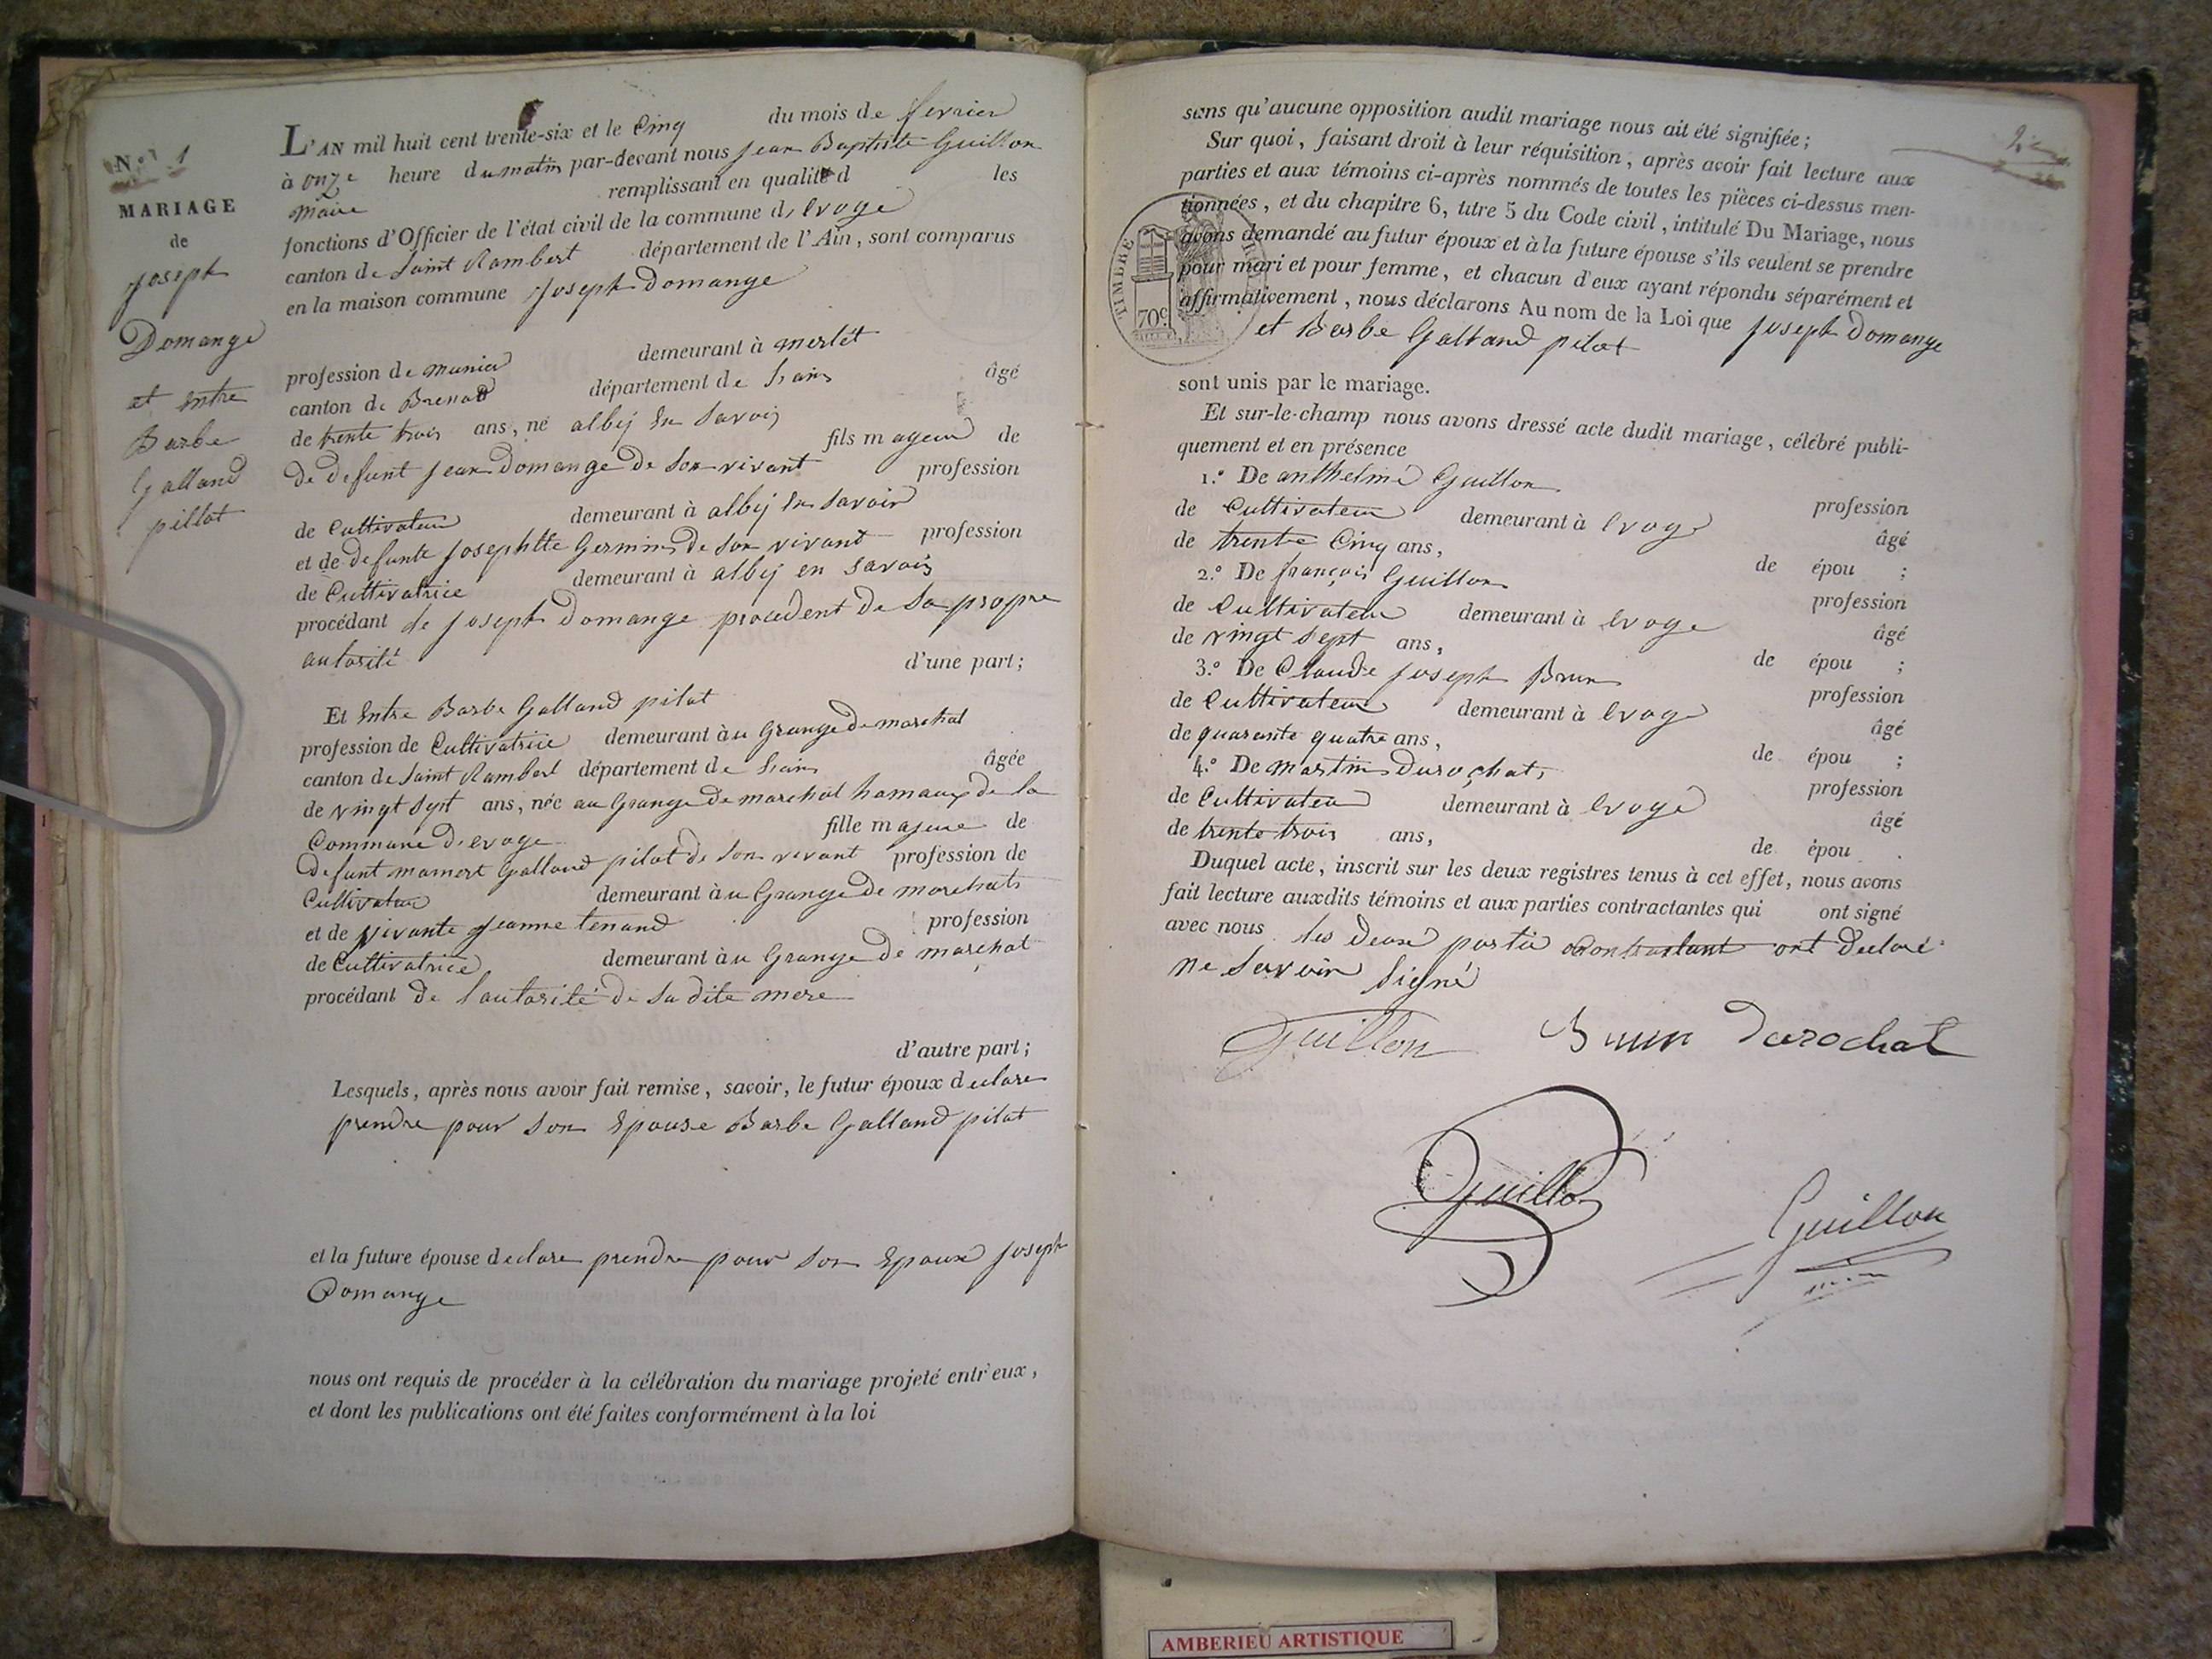 N.° 1
MARIAGE
de
joseph
Domange
et entre
Barbe
Galland
pillot
L'AN mil huit cent trente-six et le Cinq du mois de fevrier
à onze heure du matin par-devant nous jean Baptiste Guillon
maire remplissant en qualité d les
fonctions d'Officier de l'état civil de la commune d'evoge
canton de Saint Rambert département de l'Ain, sont comparus
en la maison commune joseph Domange
profession de munier demeurant à merlet
canton de Brenod département de Lains âgé
de trente trois ans, né albij En Savois
fils majeur de
De defunt jean Domange De Son vivant profession
de Cultivateur demeurant à albij En Savoir
et de defunte josephtte Germins De Son vivant profession
de Cultivatrice demeurant à albij en Savois
procédant de joseph Domange procedent De Sa propre
autorité d'une part;
Et Entre Barbe Galland pilot
profession de Cultivatrice demeurant àu Grange De marchal
canton de Saint Rambert département de Lains âgée
de vingt Sept ans, née au Grange De marchal hamaux De la
Commune D'evoge fille majeure de
Defunt mamert Galland pilot De Son vivant profession de
Cultivateur demeurant àu Grange De marchats
et de vivante jeanne tenand profession
de Cultivatrice demeurant àu Grange De marchal
procédant De l'autorité De Sa dite mere
d'autre part;
Lesquels, après nous avoir fait remise, savoir, le futur époux declare
prendre pour Son Epouse Barbe Galland pilat
et la future épouse declare prendre pour Son Epoux joseph
Domange
nous ont requis de procéder à la célébration du mariage projeté entr'eux,
et dont les publications ont été faites conformément à la loi
sans qu'aucune opposition audit mariage nous ait été signifiée;
Sur quoi, faisant droit à leur réquisition, après avoir fait lecture aux
parties et aux témoins ci-après nommés de toutes les pièces ci-dessus men-
tionnées, et du chapitre 6, titre 5 du Code civil, intitulé Du Mariage, nous
avons demandé au futur époux et à la future épouse s'ils veulent se prendre
pour mari et pour femme, et chacun d'eux ayant répondu séparément et
affirmativement, nous déclarons Au nom de la Loi que joseph Domange
et Barbe Galland pilat
TIMBRE
70c
sont unis par le mariage.
Et sur-le-champ nous avons dressé acte dudit mariage, célébré publi-
quement et en présence
1.° De anthelme Guillon profession
de Cultivateur demeurant à Evoge âgé
de trente Cinq ans, de épou ;
2.° De françois Guillon profession
de Cultivateur demeurant à Evoge âgé
de vingt Sept ans, de épou ;
3.° De Claude joseph Brun profession
de Cultivateur demeurant à Evoge âgé
de quarante quatre ans, de épou ;
4.° De martin Durochat profession
de Cultivateur demeurant à Evoge âgé
de trente trois ans, de épou .
Duquel acte, inscrit sur les deux registres tenus à cet effet, nous avons
fait lecture auxdits témoins et aux parties contractantes qui ont signé
avec nous les Deux partie ont Declaré
ne Savoir Signé
Guillon Brun Durochat
Guillon
Guillon
AMBERIEU ARTISTIQUE